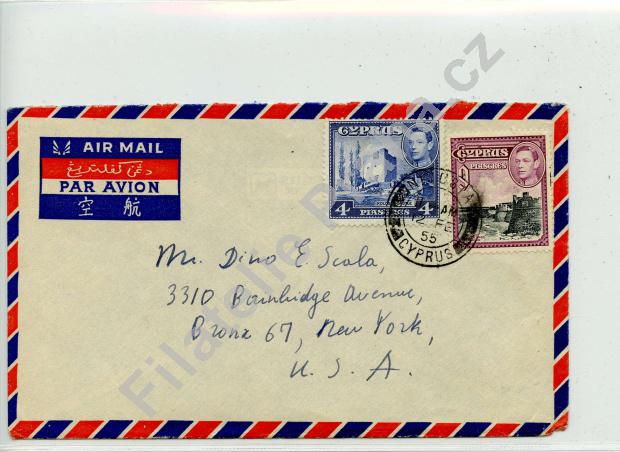 AIR MAIL
PAR AVION
空 航
CYPRUS
4 PIASTRES 4
CYPRUS
PIASTRES
AM
FE
55
CYPRUS
Mr. Dino E. Scala,
3310 Bainbridge Avenue,
Bronx 67, New York,
U. S. A.
Filatelie Burda.cz